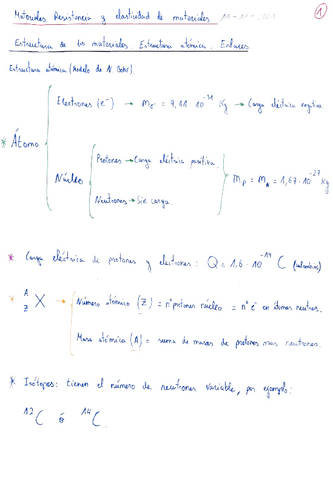 Materiales Resistencia y elasticidad de materiales
1
Estructura de los materiales Estructura atómica. Enlaces
Estructura atómica (Modelo de N. Bohr).
Electrones (e⁻) → Me⁻ = 9,11 · 10⁻³¹ Kg → Carga eléctrica negativa
* Átomo
Protones → Carga eléctrica positiva.
Núcleo
Mp = Mn = 1,67 · 10⁻²⁷ Kg
Neutrones → Sin carga
* Carga eléctrica de protones y electrones: Q = 1,6 · 10⁻¹⁹ C (culombios)
* A Z X → Número atómico (Z) = nº protones núcleo = nº e⁻ en átomos neutros.
Masa atómica (A) = suma de masas de protones más neutrones.
* Isótopos: tienen el número de neutrones variable, por ejemplo:
¹²C ó ¹⁴C.